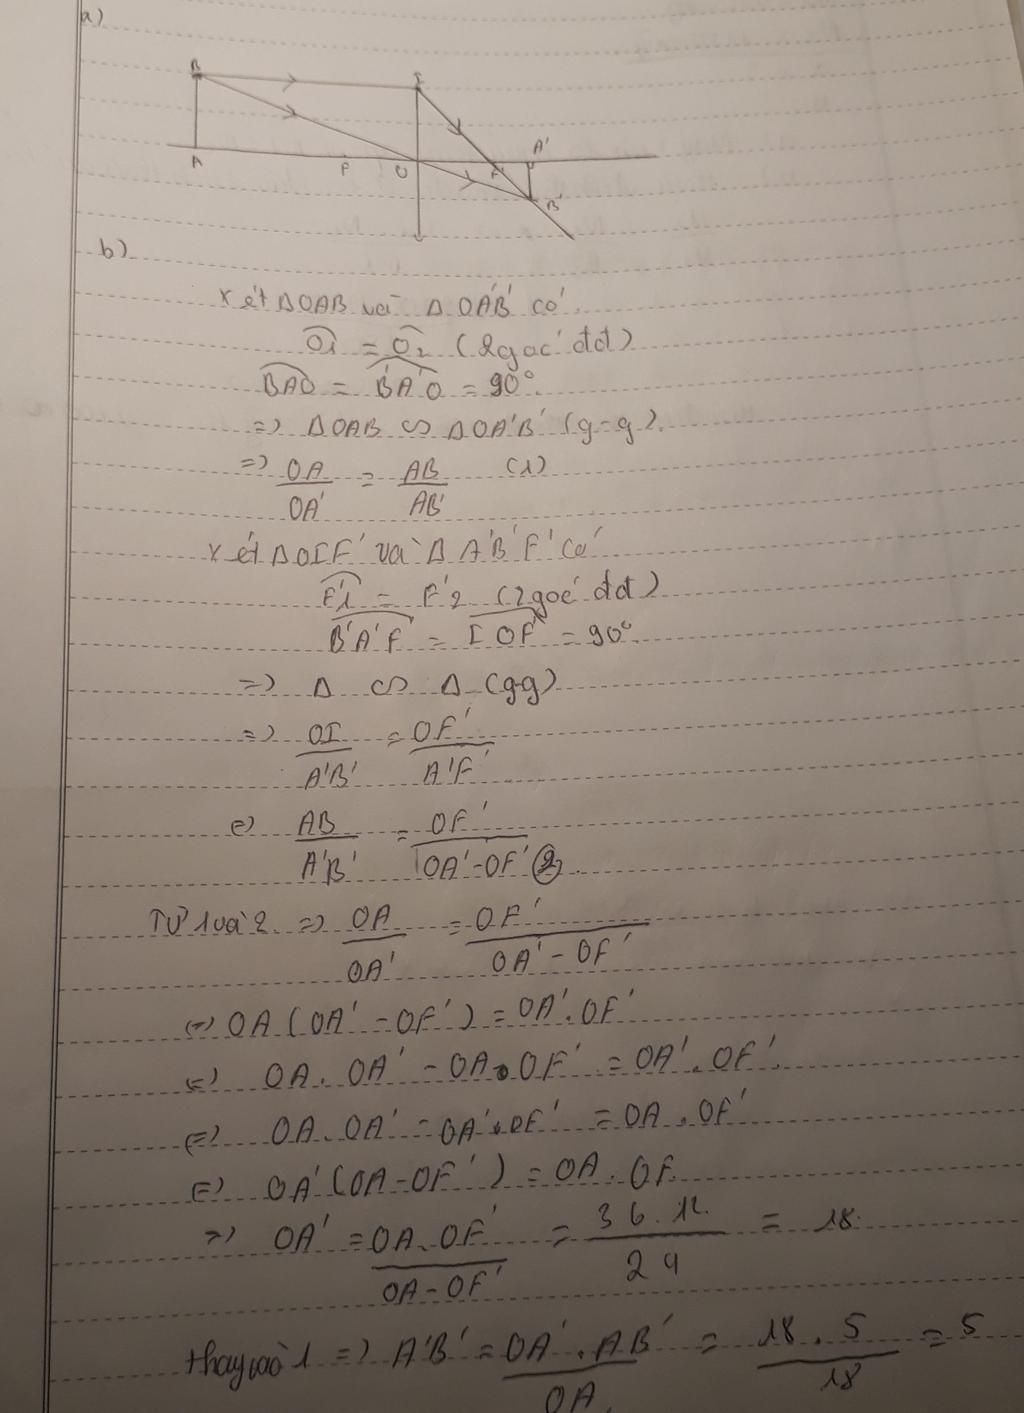 a)
B I
A F O F' A' B'
b)
Xét ΔOAB và ΔOA'B' có
Ô1 = Ô2 (2 góc đđ)
BAO = B'A'O = 90°
=> ΔOAB ∽ ΔOA'B' (g-g)
=> OA/OA' = AB/AB' (1)
Xét ΔOIF' và ΔA'B'F' có
F'1 = F'2 (2 góc đđ)
B'A'F = IOF' = 90°
=> Δ ∽ Δ (gg)
=> OI/A'B' = OF'/A'F'
(=) AB/A'B' = OF'/OA'-OF' (2)
Từ 1 và 2 => OA/OA' = OF'/OA'-OF'
(=) OA(OA'-OF') = OA'.OF'
(=) OA.OA' - OA.OF' = OA'.OF'
(=) OA.OA' - OA'.OF' = OA.OF'
(=) OA'(OA-OF') = OA.OF
=> OA' = OA.OF'/OA-OF' = 36.12/24 = 18
thay vào 1 => A'B' = OA'.AB'/OA = 18.5/18 = 5